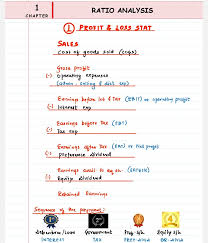 1
CHAPTER
RATIO ANALYSIS
1 PROFIT & LOSS STAT
SALES
Cost of goods sold (COGS)
Gross profit
(-) Operating expenses
(admin, selling & dist. exp)
Earnings before Int & Tax (EBIT) or operating profit
(-) Interest exp
Earnings before Tax (EBT)
(-) Tax exp
Earnings after Tax (EAT) or PAT
(-) Preference dividend
Earnings avail to eq sh.
(-) Equity dividend
Retained Earnings
Sequence of the payment:
Debenture/Loan Government Pref. sh. Equity sh.
INTEREST TAX